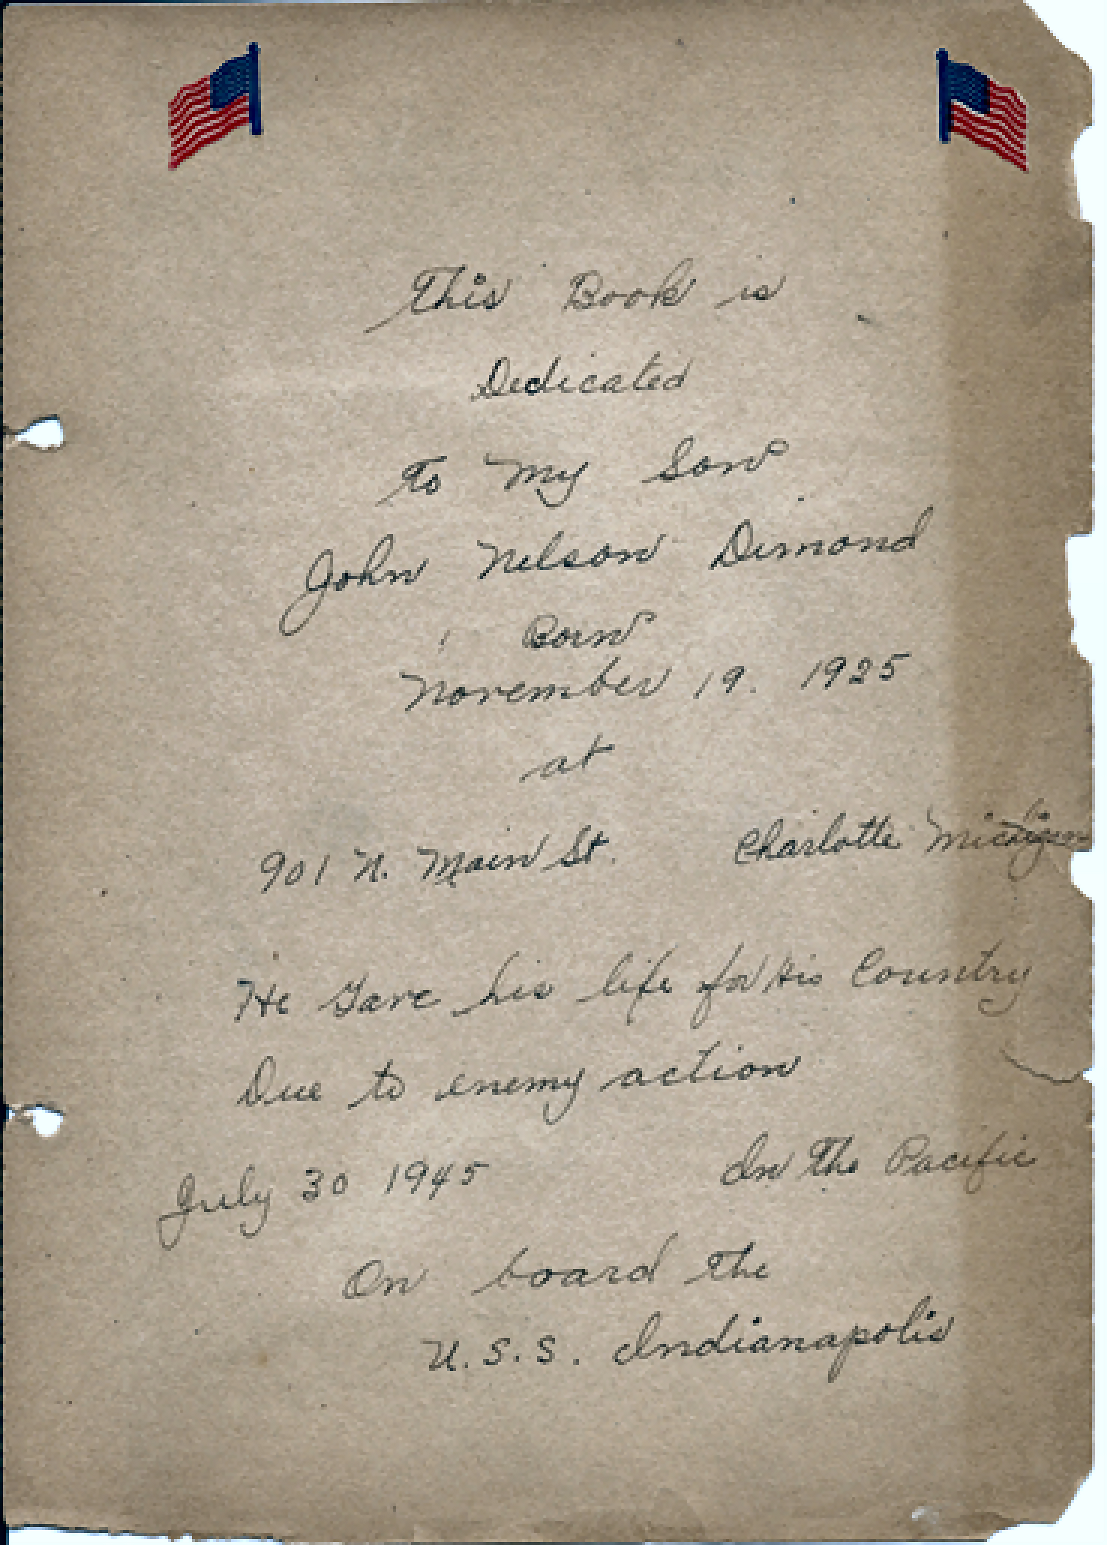 This Book is
Dedicated
To My Son
John Nelson Dimond
Born
November 19. 1925
at
901 N. Main St. Charlotte Michigan
He Gave his life for His Country
Due to enemy action
July 30 1945 In The Pacific
On board The
U.S.S. Indianapolis